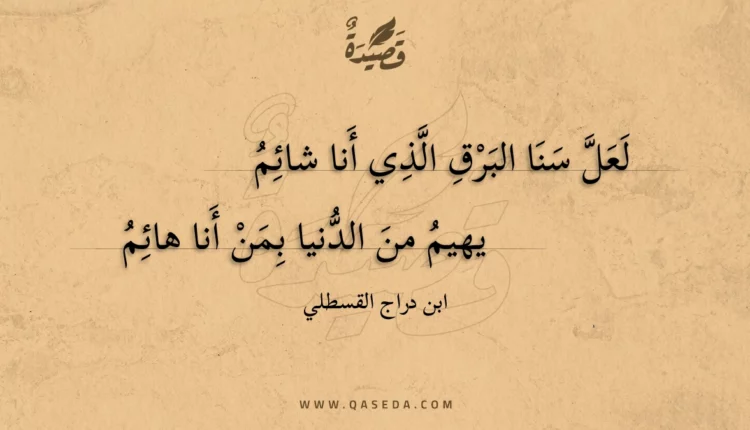 قَصِيدَةٌ
لَعَلَّ سَنَا البَرْقِ الَّذِي أَنا شائِمُ
يهيمُ منَ الدُّنيا بِمَنْ أَنا هائِمُ
ابن دراج القسطلي
WWW.QASEDA.COM